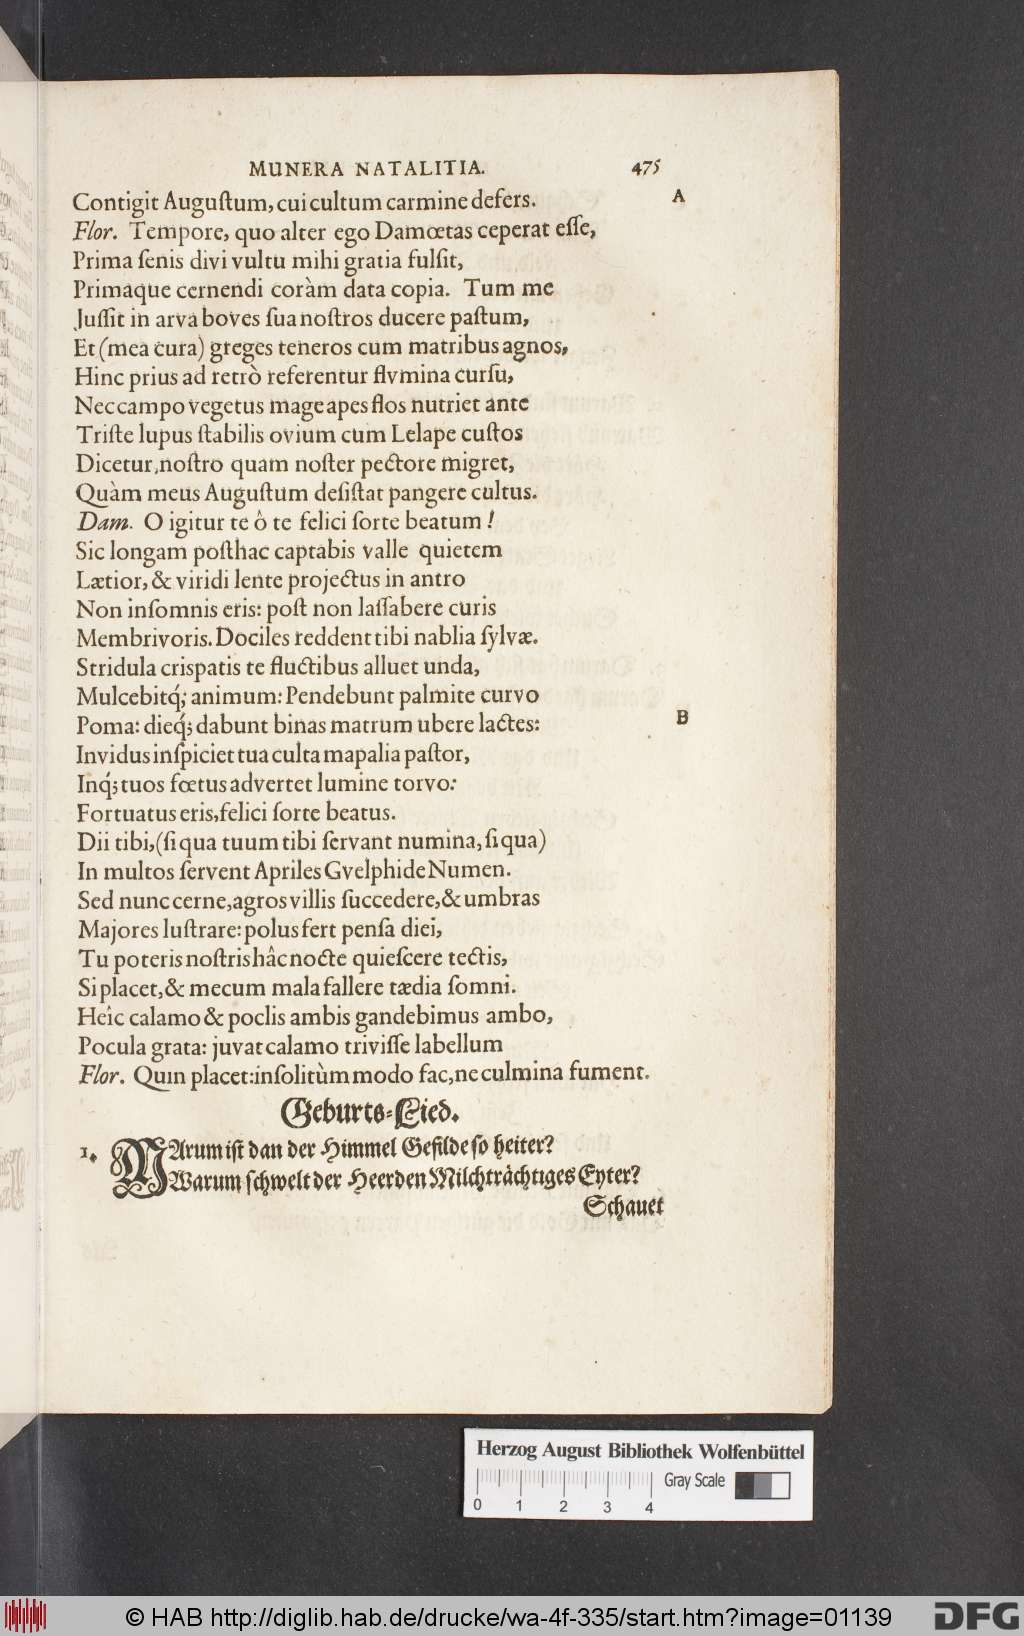 MUNERA NATALITIA. 475
Contigit Auguſtum, cui cultum carmine defers. A
Flor. Tempore, quo alter ego Damœtas ceperat eſſe,
Prima ſenis divi vultu mihi gratia fulſit,
Primaque cernendi coràm data copia. Tum me
Juſſit in arva boves ſua noſtros ducere paſtum,
Et (mea cura) greges teneros cum matribus agnos,
Hinc prius ad retrò referentur flvmina curſu,
Nec campo vegetus mage apes flos nutriet ante
Triſte lupus ſtabilis ovium cum Lelape cuſtos
Dicetur, noſtro quam noſter pectore migret,
Quàm meus Auguſtum deſiſtat pangere cultus.
Dam. O igitur te ô te felici ſorte beatum!
Sic longam poſthac captabis valle quietem
Lætior, & viridi lente projectus in antro
Non inſomnis eris: poſt non laſſabere curis
Membrivoris. Dociles reddent tibi nablia ſylvæ.
Stridula criſpatis te fluctibus alluet unda,
Mulcebitq́; animum: Pendebunt palmite curvo
Poma: dieq́; dabunt binas matrum ubere lactes: B
Invidus inſpiciet tua culta mapalia paſtor,
Inq́; tuos fœtus advertet lumine torvo:
Fortuatus eris, felici ſorte beatus.
Dii tibi, (ſi qua tuum tibi ſervant numina, ſi qua)
In multos ſervent Apriles Gvelphide Numen.
Sed nunc cerne, agros villis ſuccedere, & umbras
Majores luſtrare: polus fert penſa diei,
Tu poteris noſtris hâc nocte quieſcere tectis,
Si placet, & mecum mala fallere tædia ſomni.
Heîc calamo & poclis ambis gandebimus ambo,
Pocula grata: juvat calamo triviſſe labellum
Flor. Quin placet: inſolitùm modo fac, ne culmina fument.
Geburts-Lied.
1. WArum iſt dan der Himmel Gefilde ſo heiter?
Warum ſchwelt der Heerden Milchträchtiges Eyter?
Schauet
Herzog August Bibliothek Wolfenbüttel
Gray Scale
0 1 2 3 4
© HAB http://diglib.hab.de/drucke/wa-4f-335/start.htm?image=01139
DFG